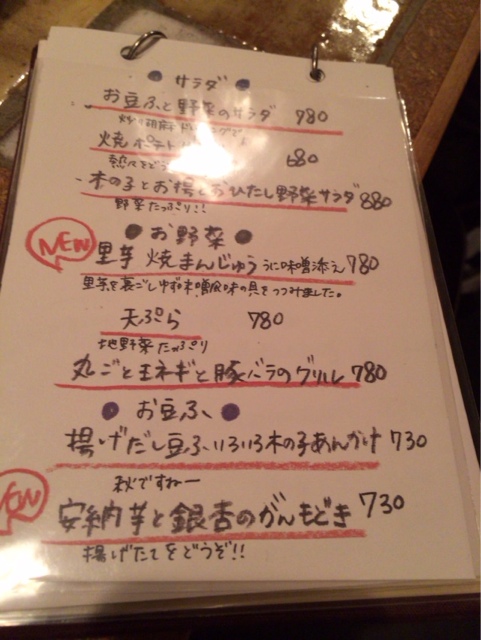 サラダ
お豆ふと野菜のサラダ 780
炒り胡麻
焼ポテト 680
熱々をどう
木の子とお揚とおひたし野菜サラダ 880
野菜たっぷり!!
お野菜
NEW
里芋 焼まんじゅう うに味噌添え 780
里芋を裏ごしゆず味噌風味の具をつつみました。
天ぷら 780
地野菜たっぷり
丸ごと玉ネギと豚バラのグリル 780
お豆ふ、
揚げだし豆ふ いろいろ木の子あんかけ 730
秋ですねー
NEW
安納芋と銀杏のがんもどき 730
揚げたてをどうぞ!!